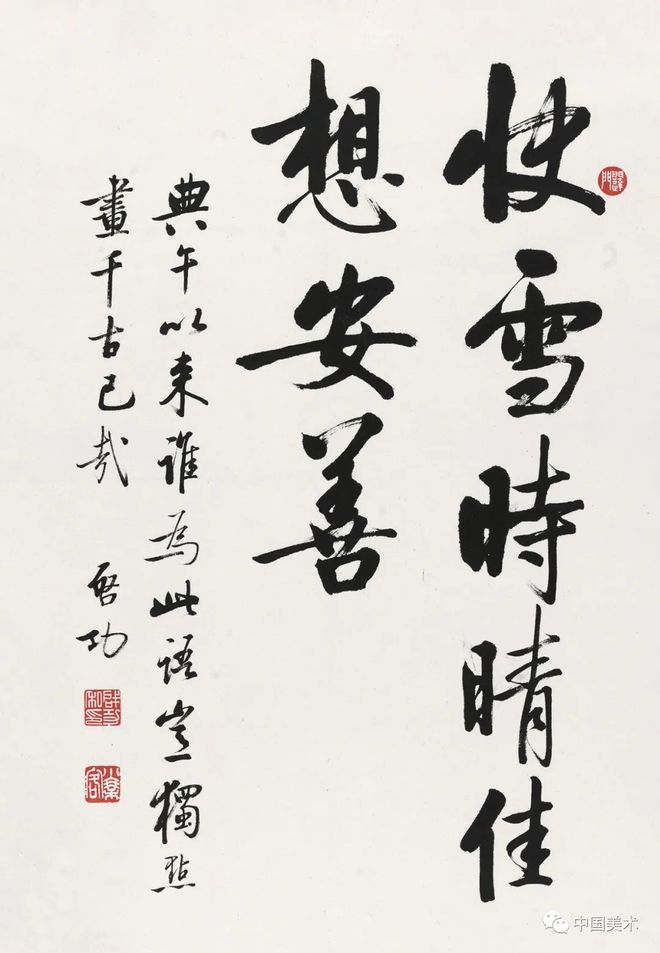 快雪時晴佳
想安善
典午以來誰為此語豈獨點
畫千古已哉
啓功
中国美术